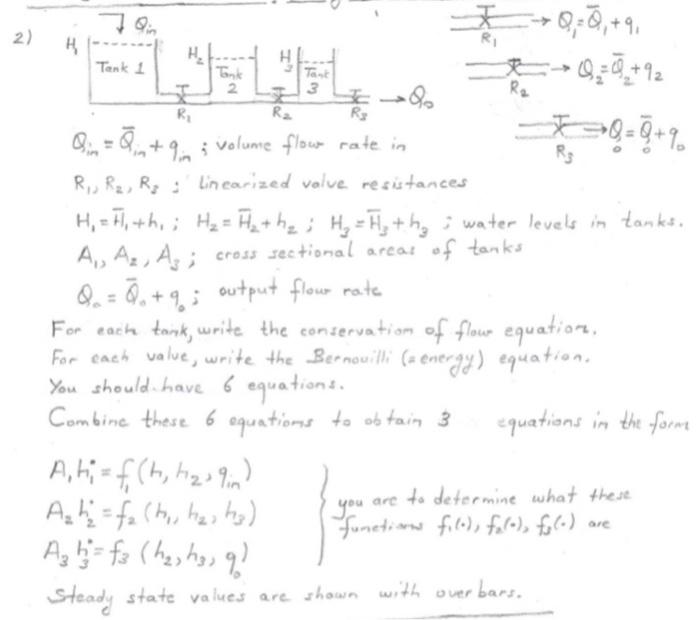 2)
Q_in
H₁
Tank 1
H₂
Tank 2
H₃
Tank 3
R₁
R₂
R₃
→ Q₀
R₁ → Q₁ = Q̄₁ + q₁
R₂ → Q₂ = Q̄₂ + q₂
R₃ → Q₀ = Q̄₀ + q₀
Q_in = Q̄_in + q_in ; volume flow rate in
R₁, R₂, R₃ ; linearized valve resistances
H₁ = H̄₁ + h₁ ; H₂ = H̄₂ + h₂ ; H₃ = H̄₃ + h₃ ; water levels in tanks.
A₁, A₂, A₃ ; cross sectional areas of tanks
Q₀ = Q̄₀ + q₀ ; output flow rate
For each tank, write the conservation of flow equation.
For each valve, write the Bernouilli (= energy) equation.
You should have 6 equations.
Combine these 6 equations to obtain 3 equations in the form
A₁ḣ₁ = f₁(h₁, h₂, q_in)
A₂ḣ₂ = f₂(h₁, h₂, h₃)
A₃ḣ₃ = f₃(h₂, h₃, q₀)
you are to determine what these
functions f₁(·), f₂(·), f₃(·) are
Steady state values are shown with overbars.